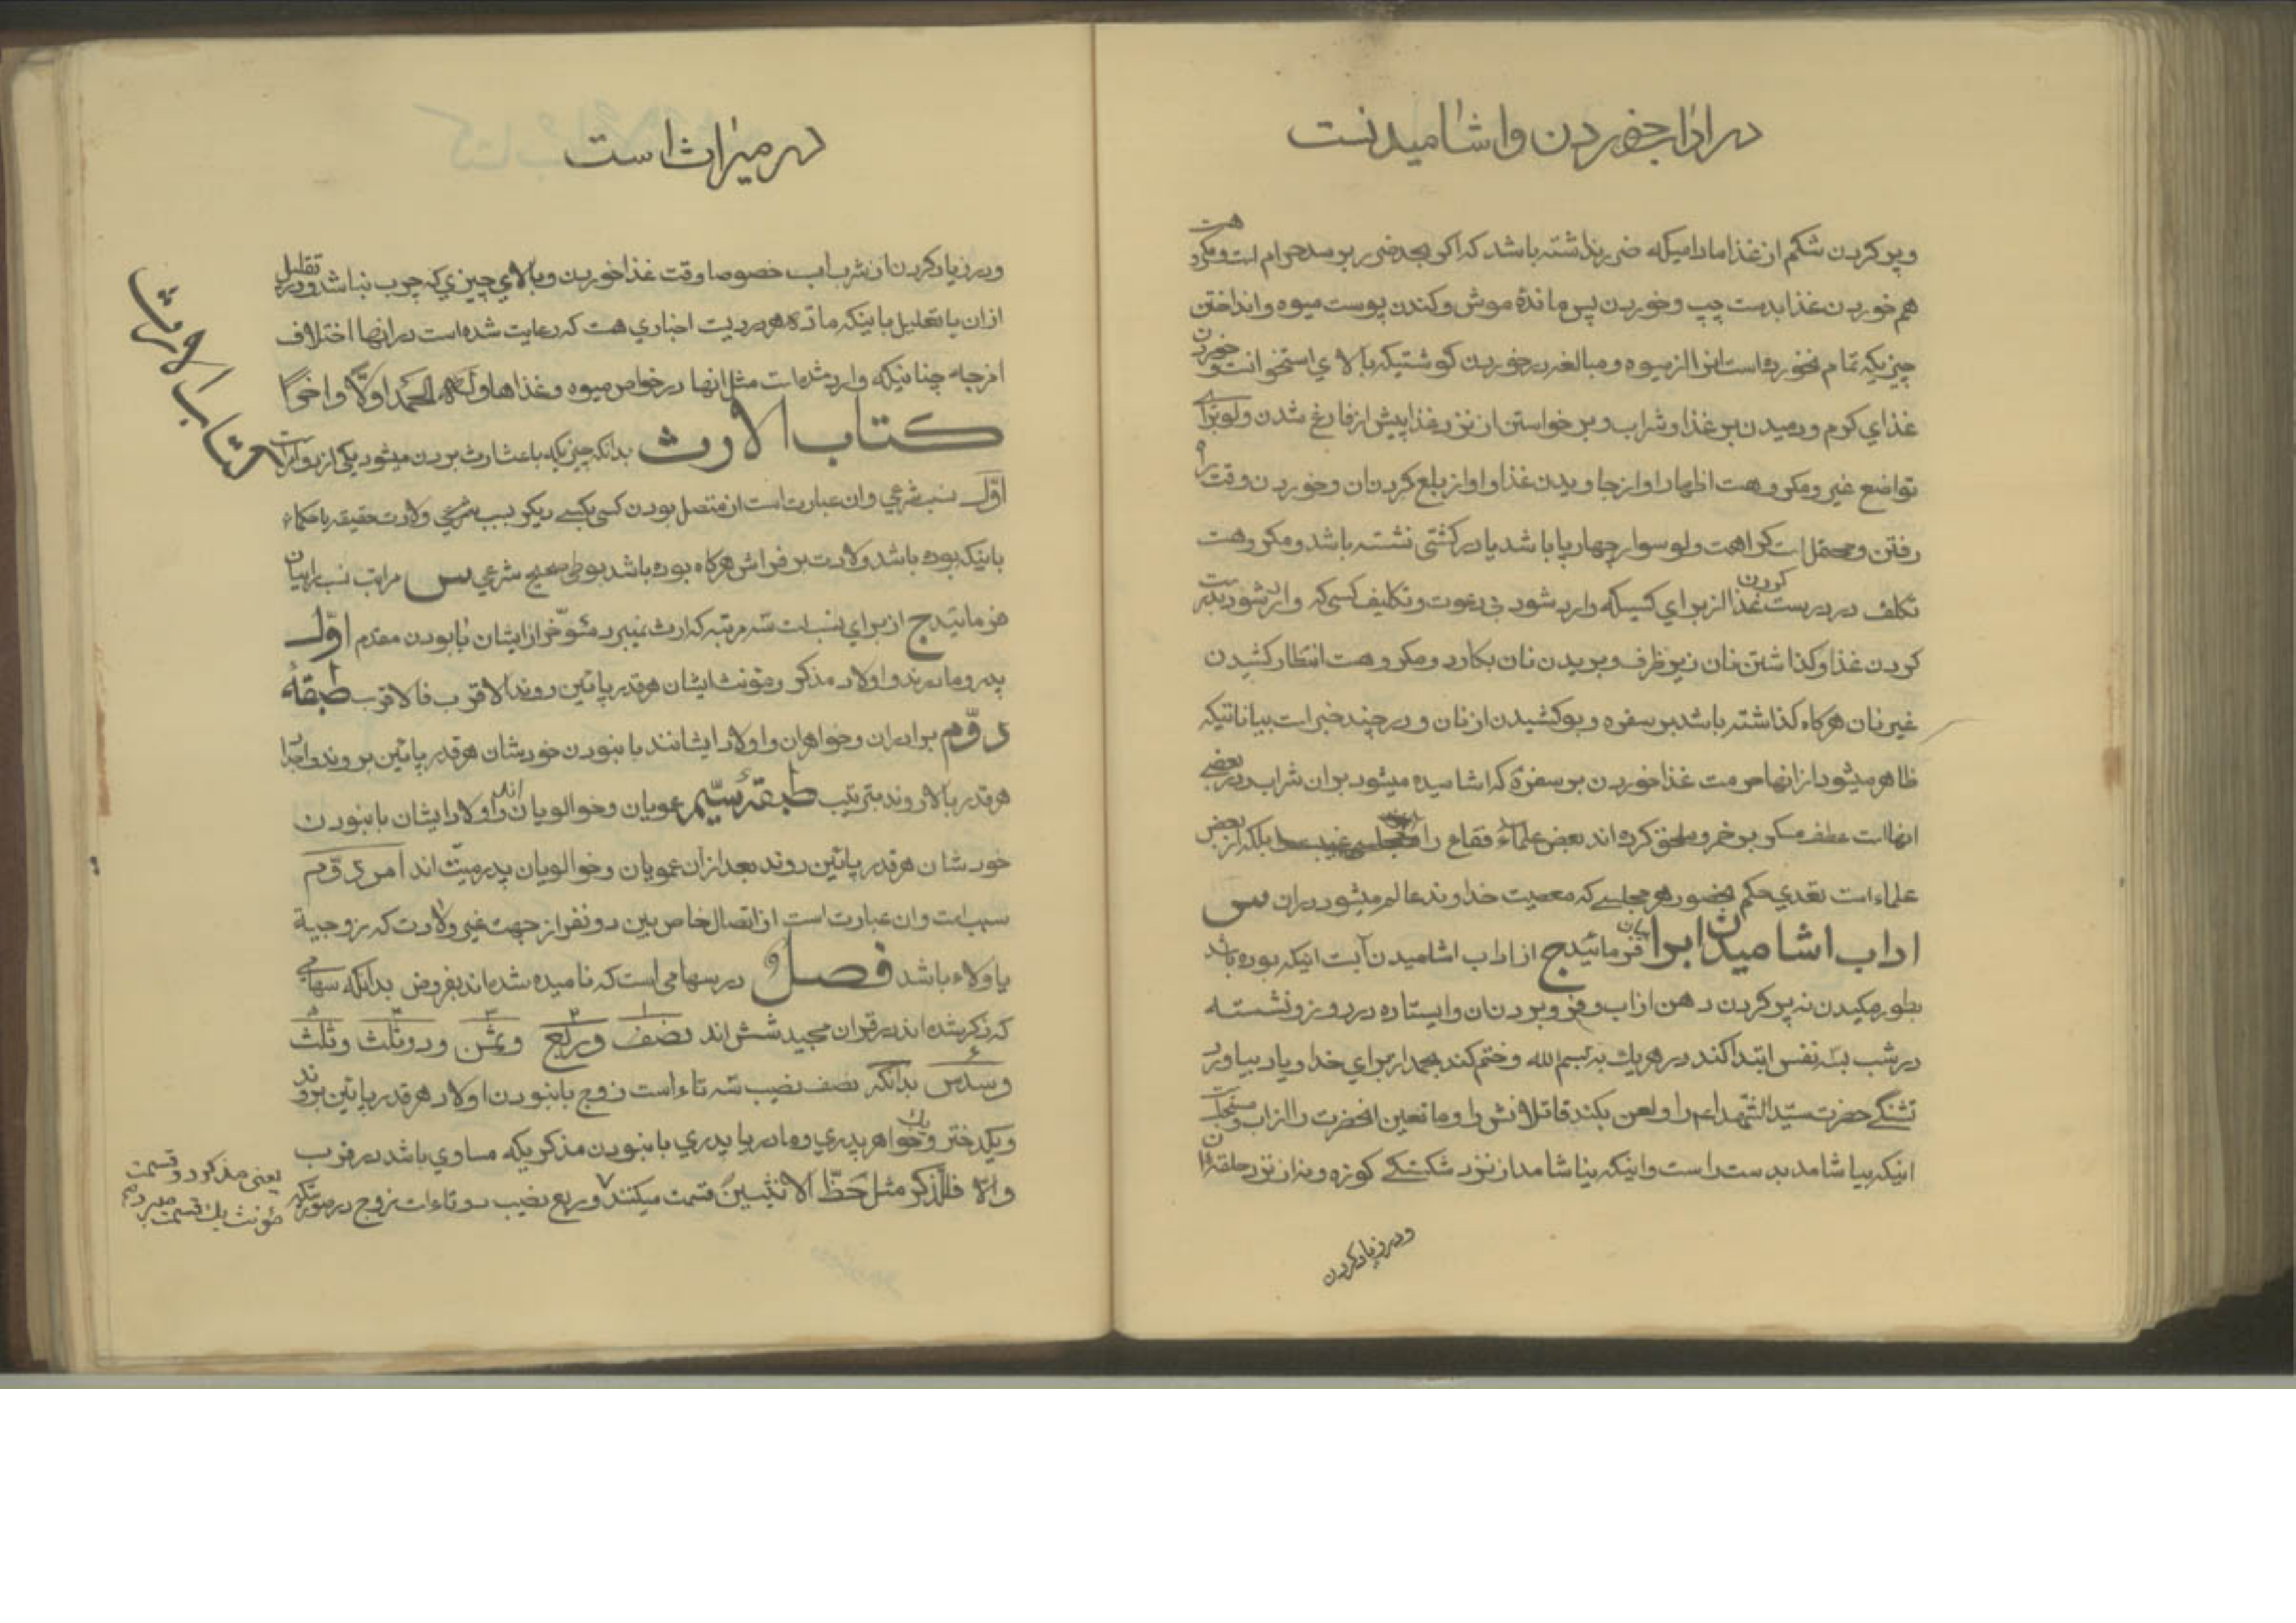 در اداب خوردن و اشامیدنست
و پر کردن شکم از غذا مادامیکه ضرر نداشته باشد که اکر بحد ضرر برسد حرام است و مکروه هست
هم خوردن غذا بدست چپ و خوردن پس ماندهٔ موش و کندن پوست میوه و انداختن
چیزیکه تمام نخورده است از میوه و مبالغه در خوردن کوشتیکه بالای استخوانست و خوردن
غذای کرم و دمیدن بر غذا و شراب و بر خواستن از نزد غذا پیش از فارغ شدن و لو برای
تواضع غیر و مکروهست اظهار اواز جاویدن غذا و اواز بلع کردنان و خوردن وقت راه
رفتن و محتمل است کراهت و لو سوار چهارپا باشد یا در کشتی نشسته باشد و مکروهست
تکلف در درست کردن غذا از برای کسیکه وارد شود بی دعوت و تکلیف کسی که وارد شود
کردن غذا و کذاشتن نان زیر ظرف و بریدن نان بکارد و مکروهست انتظار کشیدن
غیر نان هرکاه کذاشته باشد بر سفره و بو کشیدن از نان و در چند خبر است بیاناتیکه
ظاهر میشود از انها حرمت غذا خوردن بر سفرهٔ که اشامیده میشود بران شراب در بعضی
انها است عطف مسکر بر خمر و ملحق کرده اند بعض علماء فقاع را بلکه از بعض
علماء است تعدی حکم بحضور هر مجلسی که معصیت خداوند عالم میشود دران س
اداب اشامیدن ابرا بیان فرمائید ج از اداب اشامیدن آبست اینکه بوده باشد
بطور مکیدن نه پر کردن دهن از اب و فرو بردنان و ایستاده در روز و نشسته
در شب بسه نفس ابتدا کند در هر یک به بسم الله و ختم کند بحمد از برای خدا و یاد بیاورد
تشنکی حضرت سید الشهداء ع را و لعن بکند قاتلانش را و مانعین انحضرت را از اب و مستحبست
اینکه بیاشامد بدست راست و اینکه نیاشامد از نزد شکستکی کوزه و نه از نزد حلقه ان
و در زیاد کردن
در میراث است
و در زیاد کردن از شرب اب خصوصا وقت غذا خوردن و بالای چیزی که چرب نباشد و در تقلیل
ازان یا تعلیل باینکه ماده هر دردیست اخباری هست که رعایت شده است در انها اختلاف
امزجه چنانیکه وارد شده است مثل انها در خواص میوه و غذاها و له الحمد اولا و اخرا
کتاب الارث بدانکه چیزیکه باعث ارث بردن میشود یکی از دو امر است
اول نسب شرعی وان عبارت است از متصل بودن کسی بکسی دیکر بسبب شرعی ولادت حقیقه یا حکماء
باینکه بوده باشد ولادت بر فراش هرکاه بوده باشد بوطی صحیح شرعی س مراتب نسب را بیان
فرمائید ج از برای نسب است سه مرتبه که ارث نمیبرد مئوخر از ایشان با بودن مقدم اول
پدر و مادرند و اولاد مذکر و مؤنث ایشان هر قدر پائین روند الاقرب فالاقرب طبقهٔ
دوّم برادران و خواهران و اولاد ایشانند با نبودن خودشان هر قدر پائین بروند و اجداد
هر قدر بالا روند بترتیب طبقهٔ سیّم عمویان و خوالویان اند و اولاد ایشان با نبودن
خودشان هر قدر پائین روند بعد ازان عمویان و خوالویان پدر میّت اند امر دوّم
سبب است وان عبارت است از اتصال خاص بین دو نفر از جهت غیر ولادت که زوجیة
یا ولاء باشد فصل در سهامی است که نامیده شده اند بفروض بدانکه سهامی
که ذکر شده اند در قران مجید شش اند نصف و ربع و ثمن و دو ثلث و ثلث
و سدس بدانکه نصف نصیب سه تاء است زوج با نبودن اولاد هر قدر پائین بروند
و یکدختر و یک خواهر پدری و مادر یا پدری با نبودن مذکریکه مساوی باشد در قرب
و الا فللذکر مثل حظّ الانثیین قسمت میکنند و ربع نصیب دو تاء است زوج در صورتیکه
کتاب الارث
یعنی مذکر دو قسمت
مؤنث یک قسمت میبرد